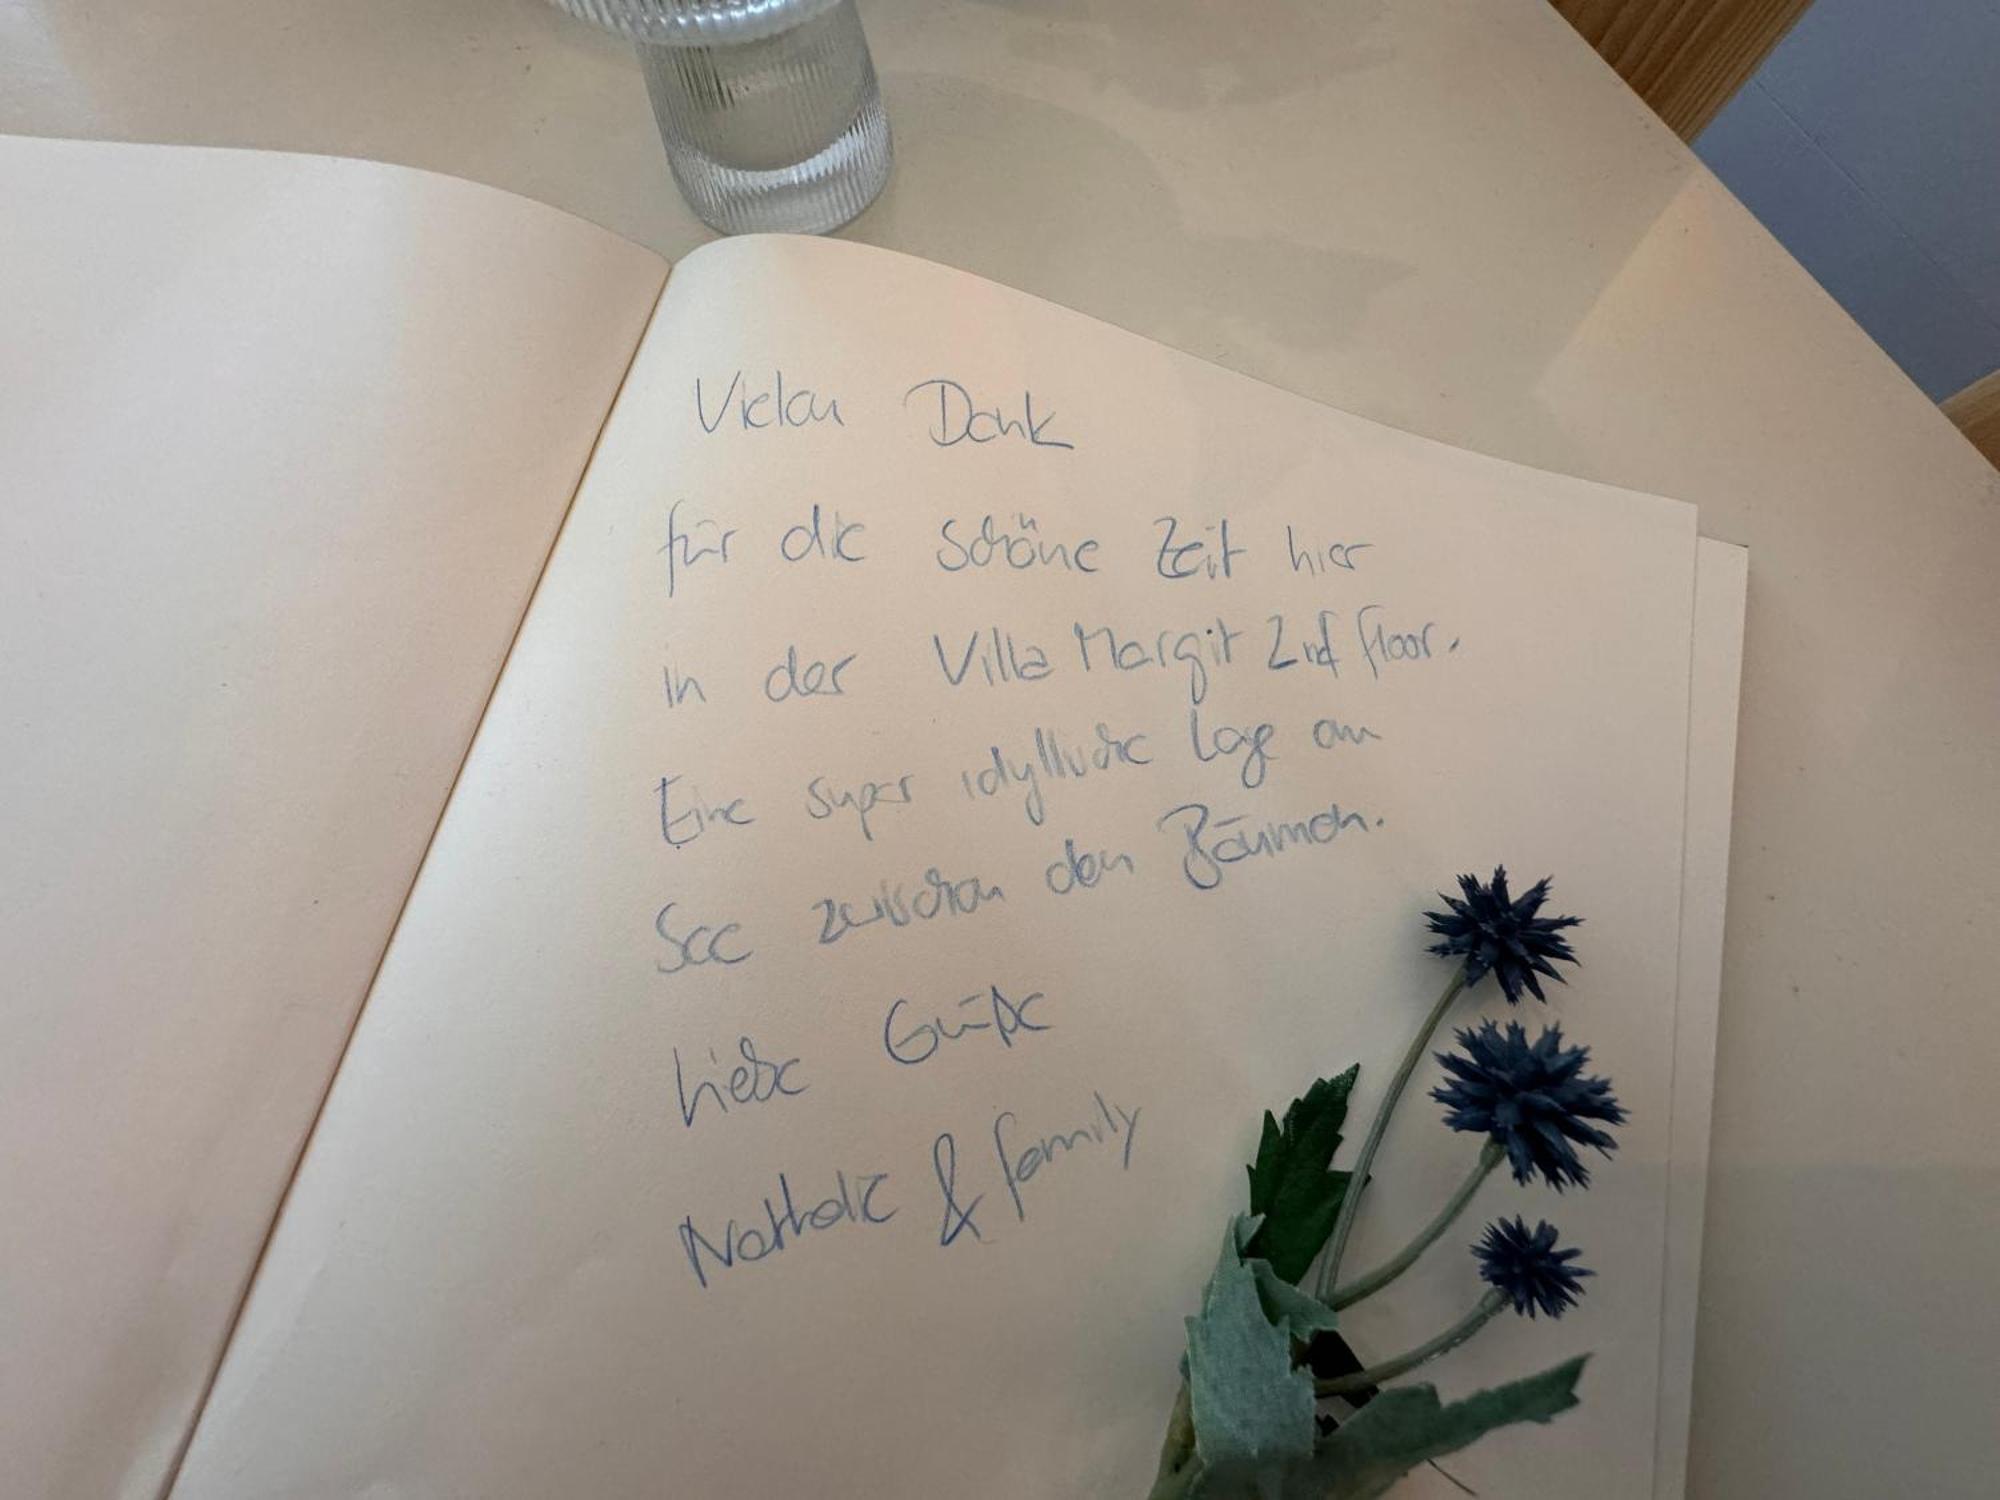 Vielen Dank
für die schöne Zeit hier
in der Villa Margit 2nd floor.
Eine super idyllische Lage am
See zwischen den Bäumen.
Liebe Grüße
Nathalie & family